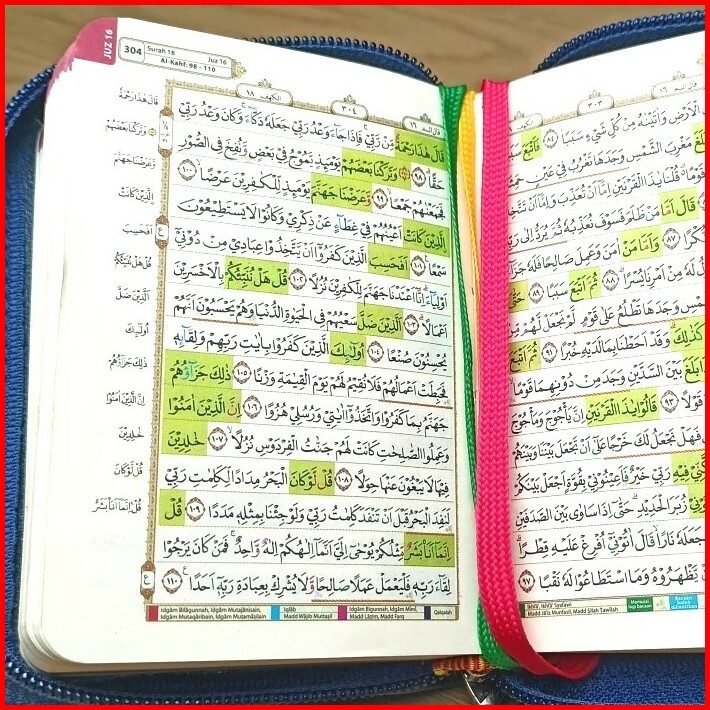 JUZ 16
304
Surah 18 Juz 16
Al-Kahf: 98 - 110
الكهف ١٨
٣٠٤
قال الم ١٦
قَالَ هٰذَا رَحْمَةٌ مِّنْ رَّبِّيْۚ فَاِذَا جَاۤءَ وَعْدُ رَبِّيْ جَعَلَهٗ دَكَّاۤءَۚ وَكَانَ وَعْدُ رَبِّيْ
حَقًّاۗ ٩٨ وَتَرَكْنَا بَعْضَهُمْ يَوْمَىِٕذٍ يَّمُوْجُ فِيْ بَعْضٍ وَّنُفِخَ فِى الصُّوْرِ
فَجَمَعْنٰهُمْ جَمْعًاۙ ٩٩ وَّعَرَضْنَا جَهَنَّمَ يَوْمَىِٕذٍ لِّلْكٰفِرِيْنَ عَرْضًاۙ ١٠٠
الَّذِيْنَ كَانَتْ اَعْيُنُهُمْ فِيْ غِطَاۤءٍ عَنْ ذِكْرِيْ وَكَانُوْا لَا يَسْتَطِيْعُوْنَ
سَمْعًاࣖ ١٠١ اَفَحَسِبَ الَّذِيْنَ كَفَرُوْٓا اَنْ يَّتَّخِذُوْا عِبَادِيْ مِنْ دُوْنِيْٓ
اَوْلِيَاۤءَۗ اِنَّآ اَعْتَدْنَا جَهَنَّمَ لِلْكٰفِرِيْنَ نُزُلًا ١٠٢ قُلْ هَلْ نُنَبِّئُكُمْ بِالْاَخْسَرِيْنَ
اَعْمَالًاۗ ١٠٣ اَلَّذِيْنَ ضَلَّ سَعْيُهُمْ فِى الْحَيٰوةِ الدُّنْيَا وَهُمْ يَحْسَبُوْنَ اَنَّهُمْ
يُحْسِنُوْنَ صُنْعًا ١٠٤ اُولٰۤىِٕكَ الَّذِيْنَ كَفَرُوْا بِاٰيٰتِ رَبِّهِمْ وَلِقَاۤىِٕهٖ
فَحَبِطَتْ اَعْمَالُهُمْ فَلَا نُقِيْمُ لَهُمْ يَوْمَ الْقِيٰمَةِ وَزْنًا ١٠٥ ذٰلِكَ جَزَاۤؤُهُمْ
جَهَنَّمُ بِمَا كَفَرُوْا وَاتَّخَذُوْٓا اٰيٰتِيْ وَرُسُلِيْ هُزُوًا ١٠٦ اِنَّ الَّذِيْنَ اٰمَنُوْا
وَعَمِلُوا الصّٰلِحٰتِ كَانَتْ لَهُمْ جَنّٰتُ الْفِرْدَوْسِ نُزُلًاۙ ١٠٧ خٰلِدِيْنَ
فِيْهَا لَا يَبْغُوْنَ عَنْهَا حِوَلًا ١٠٨ قُلْ لَّوْ كَانَ الْبَحْرُ مِدَادًا لِّكَلِمٰتِ رَبِّيْ
لَنَفِدَ الْبَحْرُ قَبْلَ اَنْ تَنْفَدَ كَلِمٰتُ رَبِّيْ وَلَوْ جِئْنَا بِمِثْلِهٖ مَدَدًا ١٠٩ قُلْ
اِنَّمَآ اَنَا۠ بَشَرٌ مِّثْلُكُمْ يُوْحٰٓى اِلَيَّ اَنَّمَآ اِلٰهُكُمْ اِلٰهٌ وَّاحِدٌۚ فَمَنْ كَانَ يَرْجُوْا
لِقَاۤءَ رَبِّهٖ فَلْيَعْمَلْ عَمَلًا صَالِحًا وَّلَا يُشْرِكْ بِعِبَادَةِ رَبِّهٖٓ اَحَدًاࣖ ١١٠
قَالَ هٰذَا رَحْمَةٌ
وَتَرَكْنَا بَعْضَهُمْ
وَعَرَضْنَا جَهَنَّمَ
الَّذِيْنَ كَانَتْ
اَفَحَسِبَ
قُلْ هَلْ نُنَبِّئُكُمْ
اَلَّذِيْنَ ضَلَّ
اُولٰۤىِٕكَ
ذٰلِكَ جَزَاۤؤُهُمْ
اِنَّ الَّذِيْنَ اٰمَنُوْا
خٰلِدِيْنَ
قُلْ لَّوْ كَانَ
قُلْ اِنَّمَآ اَنَا۠ بَشَرٌ
Idgām Bilāgunnah, Idgām Mutajānisain,
Idgām Mutaqāribain, Idgām Mutamāṡilain
Iqlāb
Madd Wājib Muttaṣil
Idgām Bigunnah, Idgām Mīmī,
Madd Lāzim, Madd Farq
Qalqalah
٣٠٣
قال الم ١٦
الْاَرْضِ وَاٰتَيْنٰهُ مِنْ كُلِّ شَيْءٍ سَبَبًاۙ ٨٤ فَاَتْبَعَ
مَغْرِبَ الشَّمْسِ وَجَدَهَا تَغْرُبُ فِيْ عَيْنٍ
قُلْنَا يٰذَا الْقَرْنَيْنِ اِمَّآ اَنْ تُعَذِّبَ وَاِمَّآ اَنْ تَتَّخِذَ
قَالَ اَمَّا مَنْ ظَلَمَ فَسَوْفَ نُعَذِّبُهٗ ثُمَّ يُرَدُّ اِلٰى
٨٧ وَاَمَّا مَنْ اٰمَنَ وَعَمِلَ صَالِحًا فَلَهٗ
لَهٗ مِنْ اَمْرِنَا يُسْرًاۗ ٨٨ ثُمَّ اَتْبَعَ سَبَبًا ٨٩ حَتّٰٓى
وَجَدَهَا تَطْلُعُ عَلٰى قَوْمٍ لَّمْ نَجْعَلْ لَّهُمْ
كَذٰلِكَۗ وَقَدْ اَحَطْنَا بِمَا لَدَيْهِ خُبْرًا ٩١ ثُمَّ اَتْبَعَ
بَيْنَ السَّدَّيْنِ وَجَدَ مِنْ دُوْنِهِمَا قَوْمًاۙ
قَوْلًا ٩٣ قَالُوْا يٰذَا الْقَرْنَيْنِ اِنَّ يَأْجُوْجَ وَمَأْجُوْجَ
فَهَلْ نَجْعَلُ لَكَ خَرْجًا عَلٰٓى اَنْ تَجْعَلَ بَيْنَنَا وَبَيْنَهُمْ
فِيْهِ رَبِّيْ خَيْرٌ فَاَعِيْنُوْنِيْ بِقُوَّةٍ اَجْعَلْ بَيْنَكُمْ
زُبَرَ الْحَدِيْدِۗ حَتّٰىٓ اِذَا سَاوٰى بَيْنَ الصَّدَفَيْنِ
جَعَلَهٗ نَارًاۙ قَالَ اٰتُوْنِيْٓ اُفْرِغْ عَلَيْهِ قِطْرًاۗ
اَنْ يَّظْهَرُوْهُ وَمَا اسْتَطَاعُوْا لَهٗ نَقْبًا ٩٧
Ikhfā', Ikhfā' Syafawi
Madd Jā'iz Munfaṣil, Madd Ṣilah Ṭawīlah
Memulai lagi bacaan